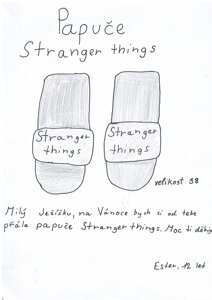 Papuče
Stranger things
Stranger things
Stranger things
velikost 38
Milý Ježíšku, na Vánoce bych si od tebe
přála papuče Stranger things. Moc ti děkuji
Ester, 12 let